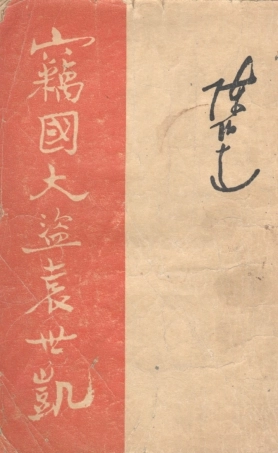 陳伯达
竊國大盜袁世凱